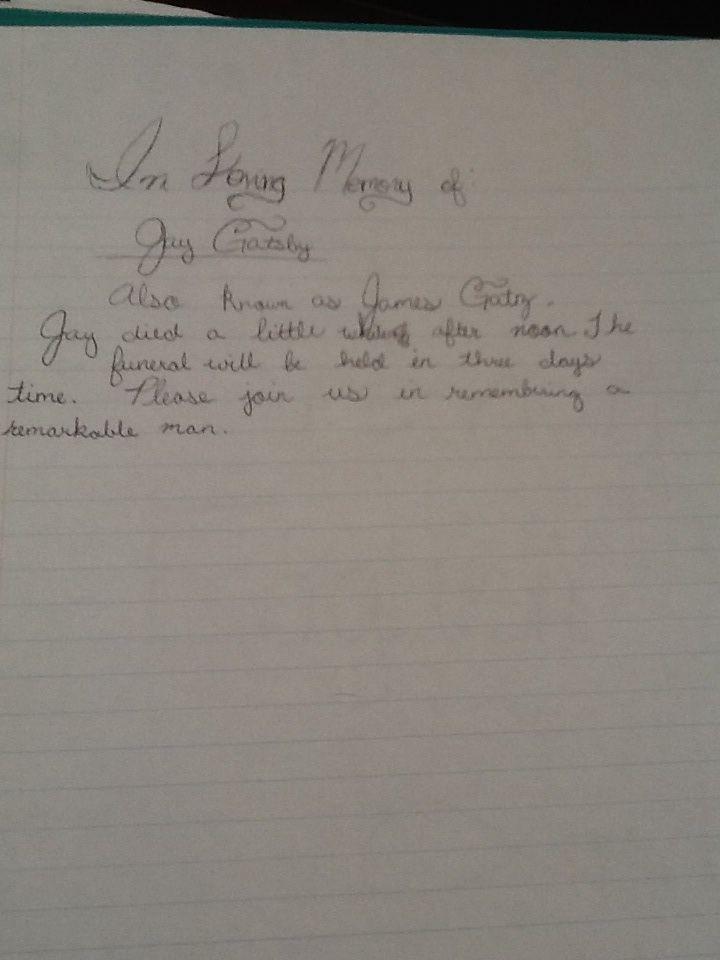 In Loving Memory of
Jay Gatsby
Also Known as James Gatz.
Jay died a little after noon. The
funeral will be held in three days
time. Please join us in remembering a
remarkable man.